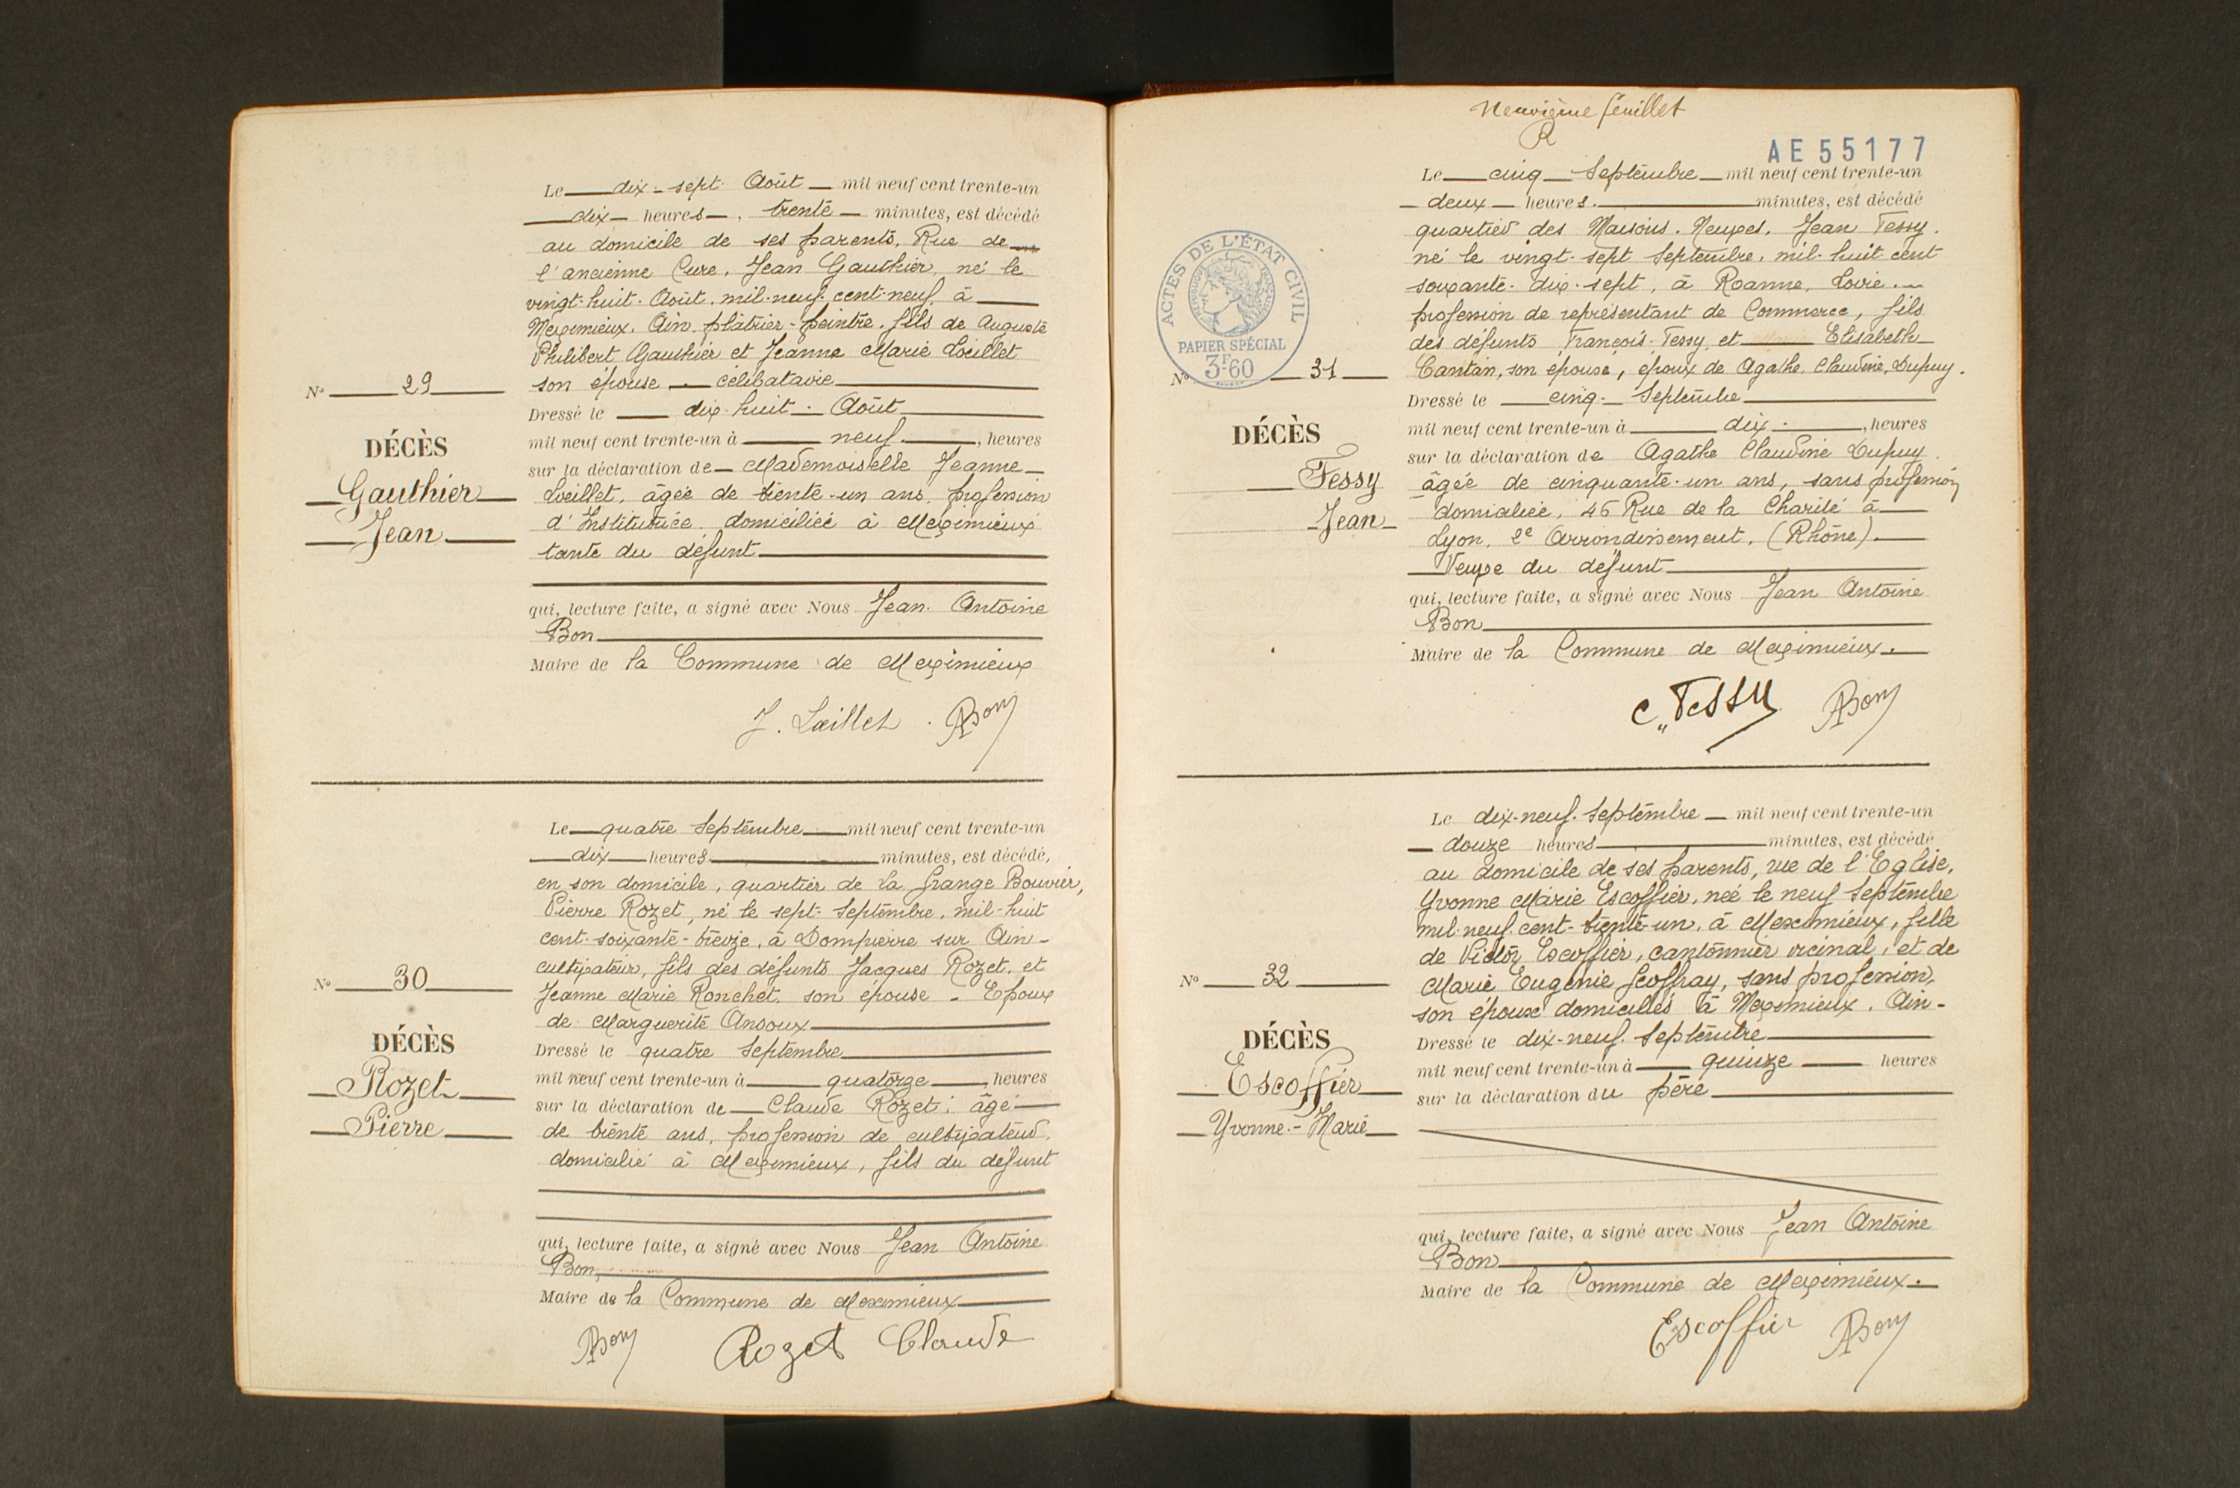 Le dix-sept Août mil neuf cent trente-un
dix heures, trente minutes, est décédé
au domicile de ses parents, Rue de
l'ancienne Cure, Jean Gauthier, né le
vingt-huit Août, mil-neuf cent-neuf, à
Meximieux, Ain, plâtrier-peintre, fils de Auguste
Philibert Gauthier et Jeanne Marie Loeillet
son épouse - célibataire
Dressé le dix-huit Août
mil neuf cent trente-un à neuf, heures
sur la déclaration de Mademoiselle Jeanne
Loeillet, âgée de trente-un ans, profession
d'Institutrice domiciliée à Meximieux
tante du défunt
qui, lecture faite, a signé avec Nous Jean Antoine
Bon
Maire de la Commune de Meximieux
J. Lœillet. ABon
No 29
DÉCÈS
Gauthier
Jean
Le quatre Septembre mil neuf cent trente-un
dix heures minutes, est décédé,
en son domicile, quartier de la Grange Bouvier,
Pierre Rozet, né le sept Septembre, mil-huit
cent-soixante-treize, à Dompierre sur Ain
cultivateur, fils des défunts Jacques Rozet, et
Jeanne Marie Ronchet, son épouse - Epoux
de Marguerite Ansoux
Dressé le quatre Septembre
mil neuf cent trente-un à quatorze, heures
sur la déclaration de Claude Rozet, âgé
de trente ans, profession de cultivateur,
domicilié à Meximieux, fils du défunt
qui, lecture faite, a signé avec Nous Jean Antoine
Bon,
Maire de la Commune de Meximieux
ABon Rozet Claude
No 30
DÉCÈS
Rozet
Pierre
Neuvième feuillet
AE 55177
Le cinq Septembre mil neuf cent trente-un
deux heures minutes, est décédé
quartier des Maisons-Neuves, Jean Fessy,
né le vingt-sept Septembre, mil-huit cent
soixante-dix-sept, à Roanne, Loire,
profession de représentant de Commerce, fils
des défunts François Fessy, et Elisabeth
Cantin, son épouse, époux de Agathe Claudine Dupuy.
Dressé le cinq Septembre
mil neuf cent trente-un à dix, heures
sur la déclaration de Agathe Claudine Dupuy
âgée de cinquante-un ans, sans profession
domiciliée, 46 Rue de la Charité à
Lyon, 2e Arrondissement, (Rhône)
Veuve du défunt
qui, lecture faite, a signé avec Nous Jean Antoine
Bon
Maire de la Commune de Meximieux.
C. Fessy ABon
ACTES DE L'ÉTAT CIVIL
PAPIER SPÉCIAL
3F60
No 31
DÉCÈS
Fessy
Jean
Le dix-neuf Septembre mil neuf cent trente-un
douze heures minutes, est décédé
au domicile de ses parents, rue de l'Eglise,
Yvonne Marie Escoffier, née le neuf Septembre
mil-neuf cent-trente-un, à Meximieux, fille
de Victor Escoffier, cantonnier vicinal, et de
Marie Eugénie Geoffray, sans profession,
son épouse domiciliés à Meximieux, Ain-
Dressé le dix-neuf Septembre
mil neuf cent trente-un à quinze heures
sur la déclaration du père
qui, lecture faite, a signé avec Nous Jean Antoine
Bon
Maire de la Commune de Meximieux.
Escoffier ABon
No 32
DÉCÈS
Escoffier
Yvonne-Marie